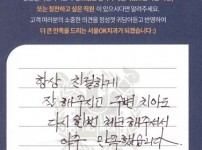 또는 칭찬하고 싶은 직원 이 있으시다면 알려주세요.
고객 여러분의 소중한 의견을 정성껏 귀담아듣고 반영하여
더 큰 만족을 드리는 서울OK치과가 되겠습니다 :)
항상 친절하게
잘 해주시고 주변 치아도
다시 한번 체크해주셔서
아주 만족했습니다